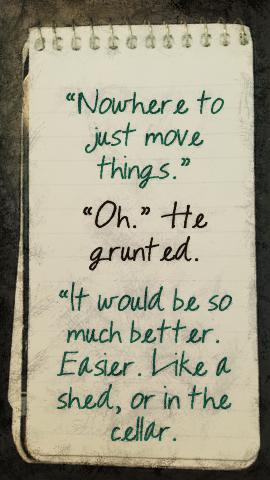 “Nowhere to
just move
things.”
“Oh.” He
grunted.
“It would be so
much better.
Easier. Like a
shed, or in the
cellar.